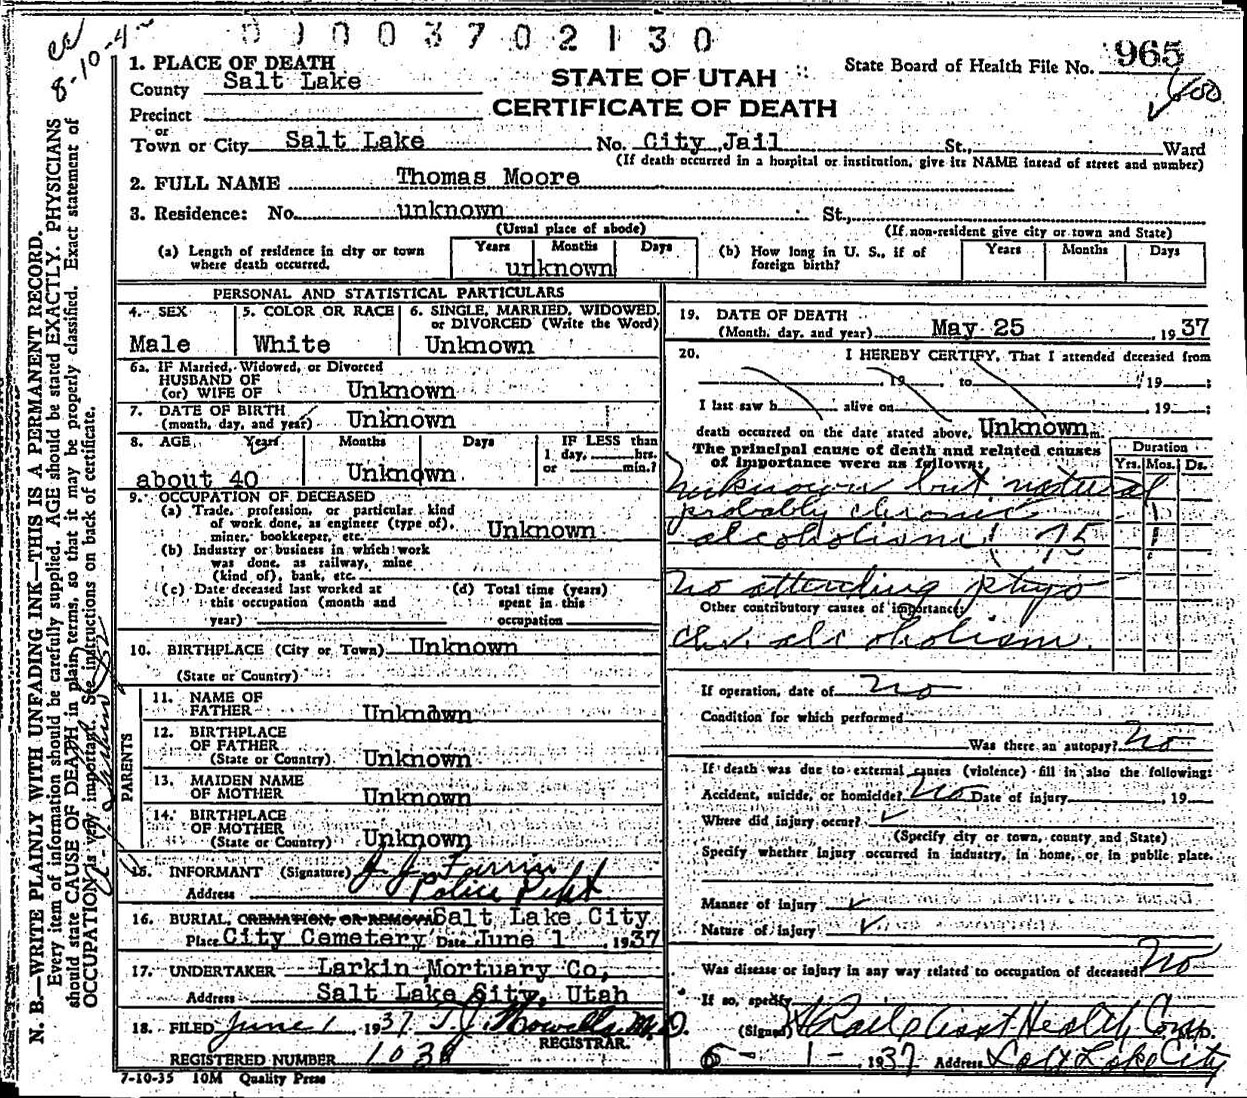 0 1 0 0 3 7 0 2 1 3 0
8-10-4
1. PLACE OF DEATH
County Salt Lake
STATE OF UTAH
CERTIFICATE OF DEATH
State Board of Health File No. 965
Precinct
or
Town or City Salt Lake No. City Jail St., Ward
(If death occurred in a hospital or institution, give its NAME instead of street and number)
2. FULL NAME Thomas Moore
3. Residence: No. unknown St.,
(Usual place of abode) (If non-resident give city or town and State)
(a) Length of residence in city or town where death occurred. Years Months Days
unknown
(b) How long in U. S., if of foreign birth? Years Months Days
PERSONAL AND STATISTICAL PARTICULARS
4. SEX 5. COLOR OR RACE 6. SINGLE, MARRIED, WIDOWED, or DIVORCED (Write the Word)
Male White Unknown
6a. IF Married, Widowed, or Divorced
HUSBAND OF
(or) WIFE OF Unknown
7. DATE OF BIRTH
(month, day, and year) Unknown
8. AGE Years Months Days IF LESS than
1 day, hrs.
or min.?
about 40 Unknown
9. OCCUPATION OF DECEASED
(a) Trade, profession, or particular kind
of work done, as engineer (type of),
miner, bookkeeper, etc. Unknown
(b) Industry or business in which work
was done, as railway, mine
(kind of), bank, etc.
(c) Date deceased last worked at
this occupation (month and
year)
(d) Total time (years)
spent in this
occupation
10. BIRTHPLACE (City or Town) Unknown
(State or Country)
PARENTS
11. NAME OF
FATHER Unknown
12. BIRTHPLACE
OF FATHER
(State or Country) Unknown
13. MAIDEN NAME
OF MOTHER Unknown
14. BIRTHPLACE
OF MOTHER
(State or Country) Unknown
15. INFORMANT (Signature) J. J.
Address Police Dept
16. BURIAL, CREMATION, OR REMOVAL Salt Lake City
Place City Cemetery Date June 1, 1937
17. UNDERTAKER Larkin Mortuary Co,
Address Salt Lake City, Utah
18. FILED June 1, 1937 T. J. Howells M.D.
REGISTRAR.
REGISTERED NUMBER 1038
7-10-35 10M Quality Press
19. DATE OF DEATH
(Month, day, and year) May 25 1937
20. I HEREBY CERTIFY, That I attended deceased from
, 19 to , 19 ;
I last saw h alive on , 19 ;
death occurred on the date stated above, Unknown m.
The principal cause of death and related causes
of importance were as follows:
Duration
Yrs. Mos. Ds.
Unknown but natural
probably chronic
alcoholism!
No attending phys
Other contributory causes of importance:
Chr. alcoholism.
If operation, date of no
Condition for which performed
Was there an autopsy? No
If death was due to external causes (violence) fill in also the following:
Accident, suicide, or homicide? No Date of injury , 19
Where did injury occur?
(Specify city or town, county and State)
Specify whether injury occurred in industry, in home, or in public place.
Manner of injury
Nature of injury
Was disease or injury in any way related to occupation of deceased? No
If so, specify
(Signed) Asst Health Com
6 - 1 - 1937 Address Salt Lake City
N. B.—WRITE PLAINLY WITH UNFADING INK—THIS IS A PERMANENT RECORD.
Every item of information should be carefully supplied. AGE should be stated EXACTLY. PHYSICIANS
should state CAUSE OF DEATH in plain terms, so that it may be properly classified. Exact statement of
OCCUPATION is very important. See instructions on back of certificate.